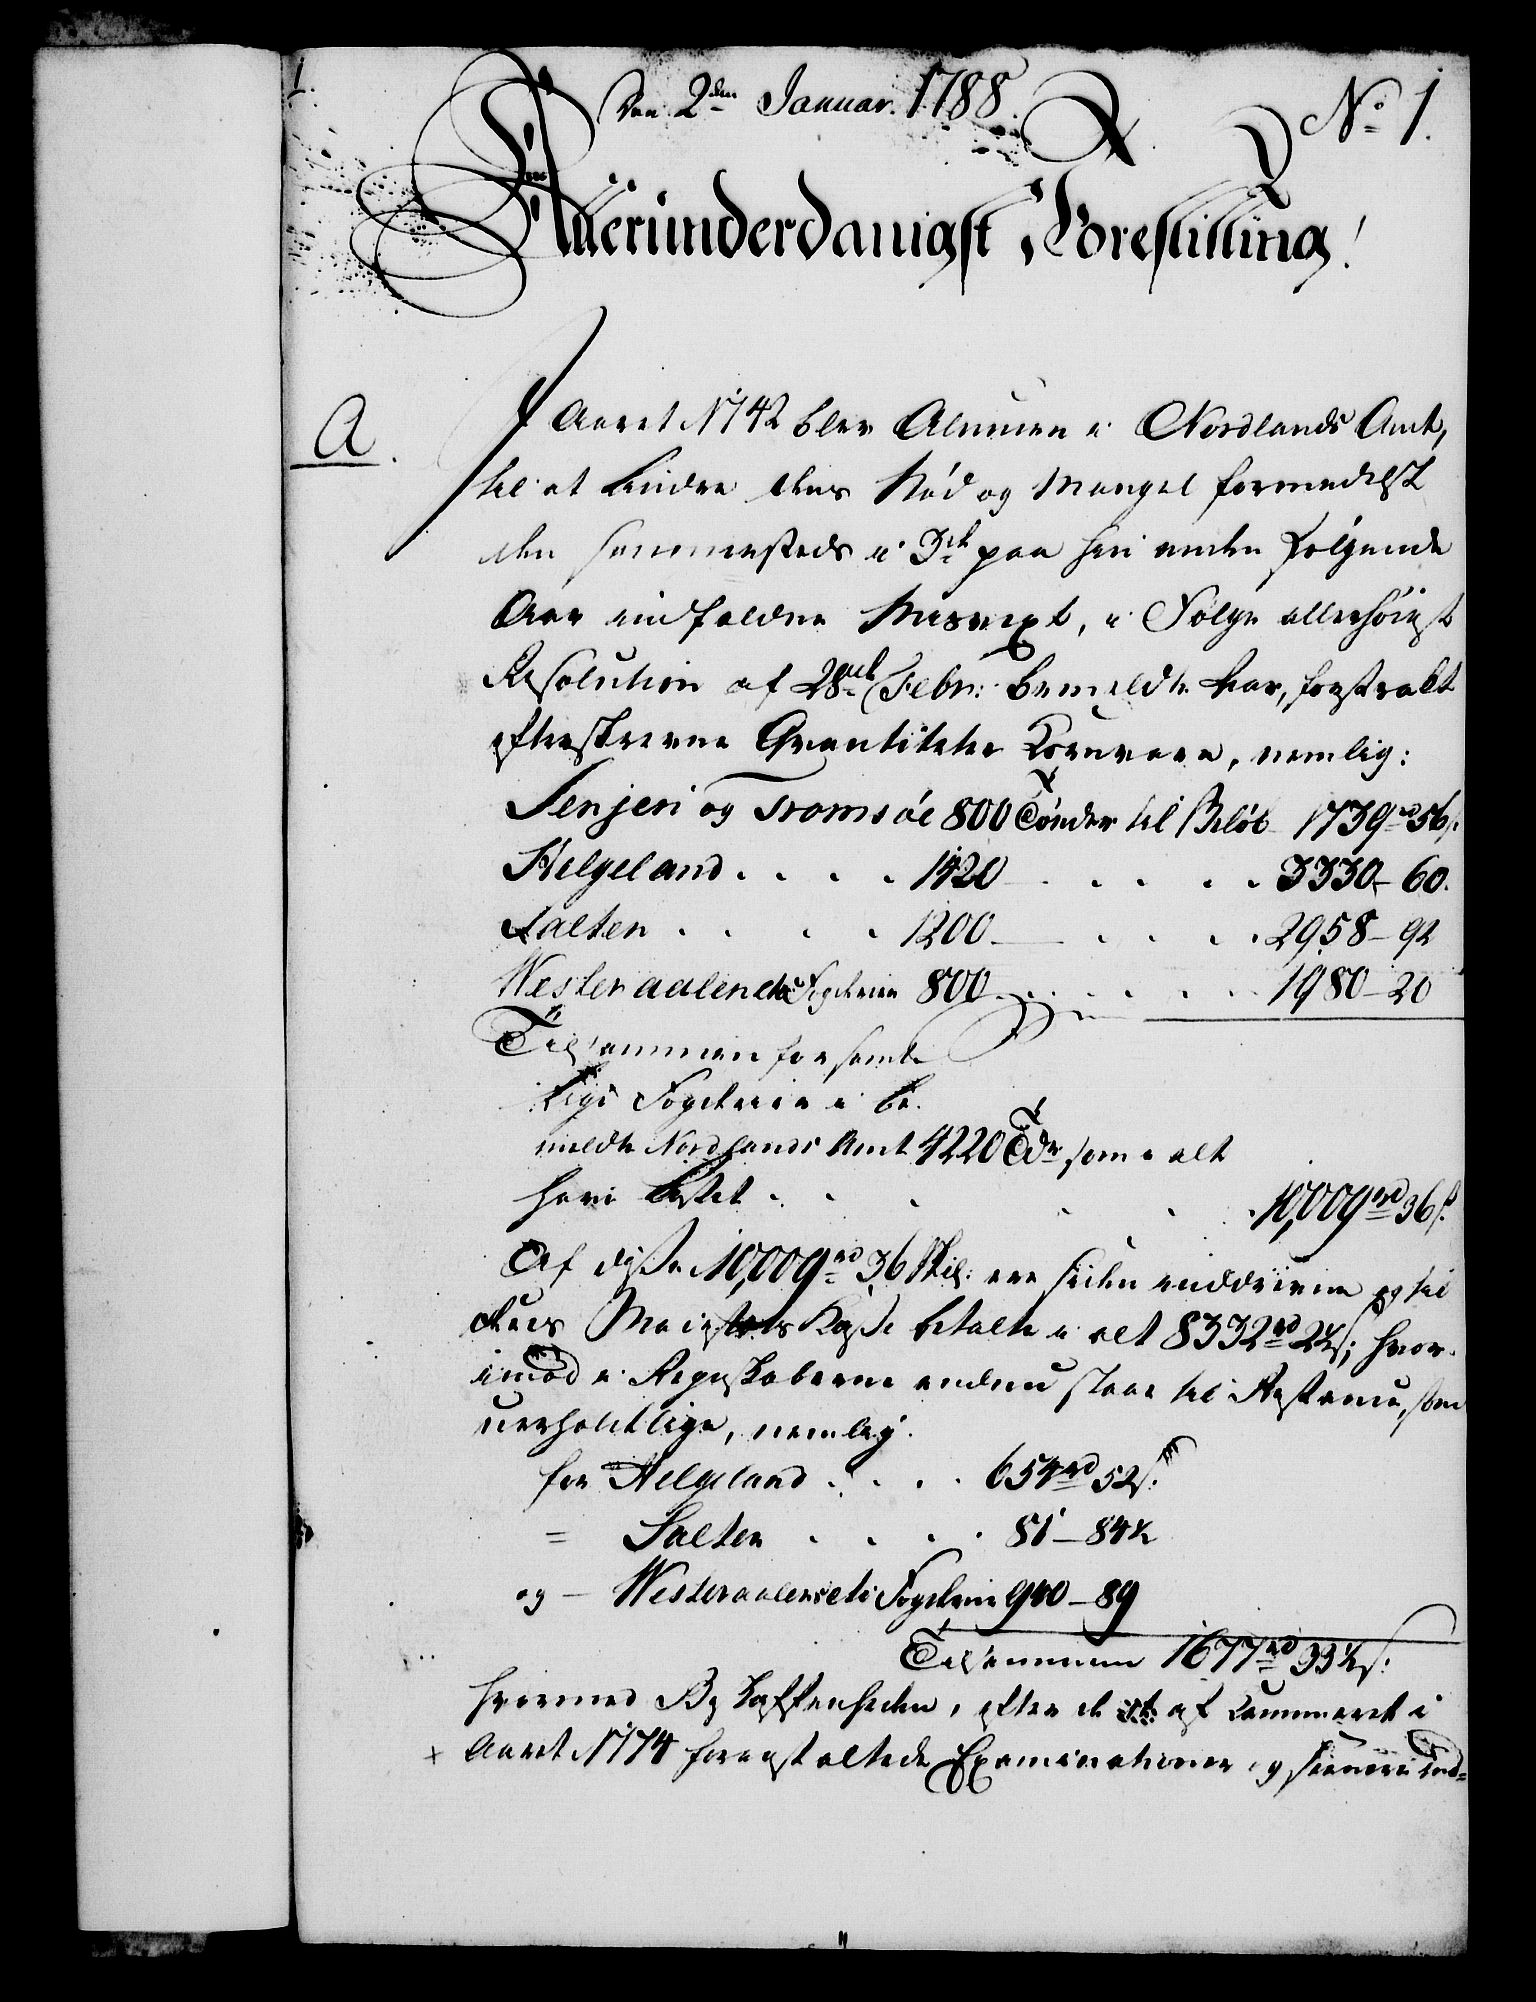 1.
Den 2den Januar. 1788.
No 1.
Allerunderdanigst Forestilling!
A.
I Aaret 1742 blev Almuen i Nordlands Amt,
til at lindre dens Nød og Mangel formedelst
den sammesteds i 3de paa hin anden følgende
Aar indfaldne Misvext, i Følge allerhøiest
Resolution af 28de Febr: bemeldte Aar, forstrakt
efterskrevne Qvantiteter Kornvare, nemlig:
Senjen og Tromsøe 800 Tønder til Beløb 1739rd 56s.
Helgeland . . . . 1420 . . . . . 3330 - 60.
Salten . . . . 1200 . . . . 2958 - 92
Westeraalens Fogderie 800 . . . . . 1980 - 20
Tilsammen for samt-
lige Fogderier i be-
meldte Nordlands Amt 4220 Tdr som i alt
have kostet . . . . . . 10,009rd 36s.
Af disse 10,009rd 36 Skil: ere siden inddrevne og til
deres Majestets Kasse betalte i alt 8332rd 2½s; hvor-
imod i Regnskaberne endnu staae til Restance, som
uerholdelige, nemlig.
for Helgeland . . . . 654rd 52s.
= Salten . . . . 81 - 84½
og - Westeraalens Fogderie 940 - 89
Tilsammen 1677rd 33½s.
hvormed Beskaffenheden, efter de af Kammeret i
+ Aaret 1774 foranstaltede Examinationer og senere ind=